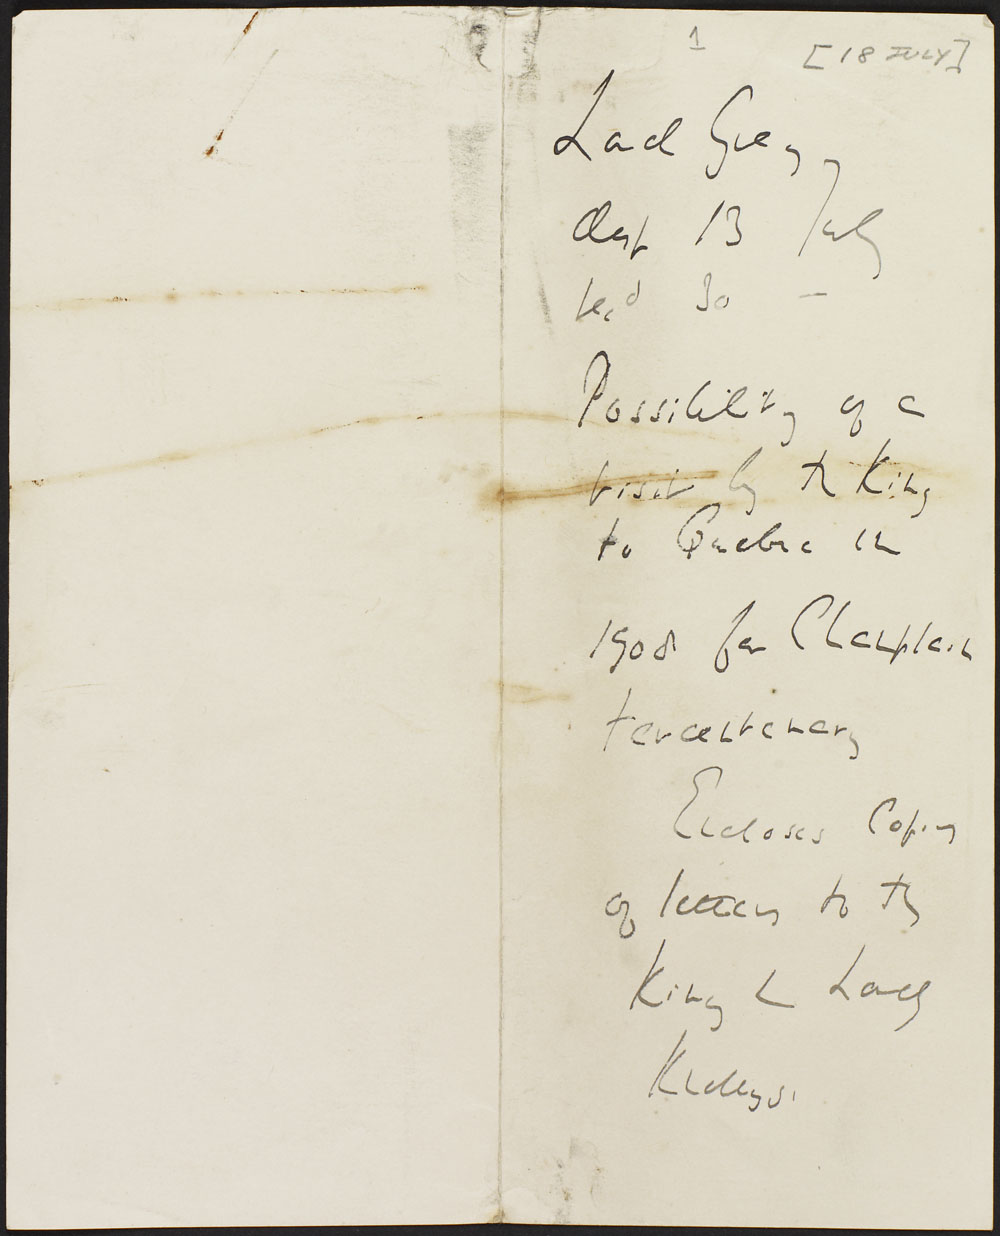 1
[18 JULY]
Lord Grey,
dat 13 July
recd 30 –
Possibility of a
visit by the King
to Quebec in
1908 for Champlain
tercentenary
Encloses Copies
of letters to the
King & Lord
Knollys.